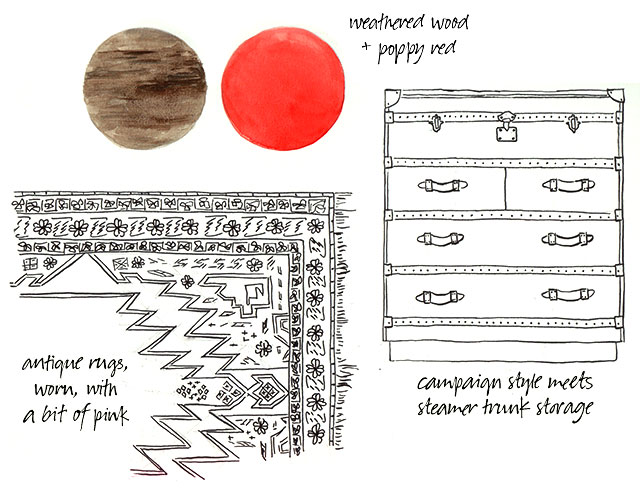 weathered wood
+ poppy red
antique rugs,
worn, with
a bit of pink
campaign style meets
steamer trunk storage